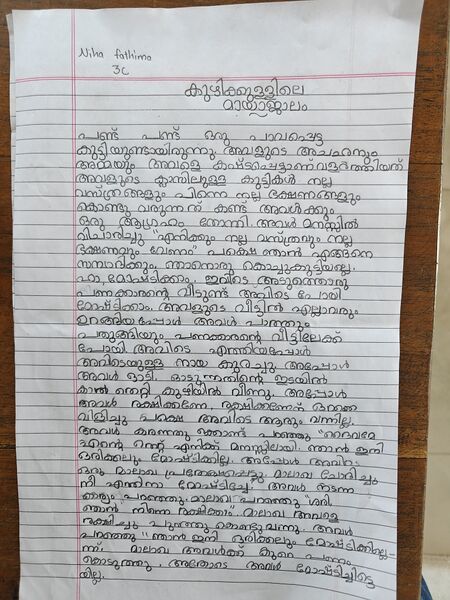 Niha fathima
3C
കുഴിക്കുള്ളിലെ
മായാജാലം
പണ്ട് പണ്ട് ഒരു പാവപ്പെട്ട
കുട്ടിയുണ്ടായിരുന്നു. അവളുടെ അച്ഛനും
അമ്മയും അവളെ കഷ്ടപ്പെട്ടാണ് വളർത്തിയത്
അവളുടെ ക്ലാസിലുള്ള കുട്ടികൾ നല്ല
വസ്ത്രങ്ങളും പിന്നെ നല്ല ഭക്ഷണങ്ങളും
കൊണ്ടു വരുന്നത് കണ്ട് അവൾക്കും
ഒരു ആഗ്രഹം തോന്നി അവൾ മനസ്സിൽ
വിചാരിച്ചു "എനിക്കും നല്ല വസ്ത്രവും നല്ല
ഭക്ഷണവും വേണം" പക്ഷെ ഞാൻ എങ്ങനെ
സമ്പാദിക്കും. ഞാനൊരു കൊച്ചുകുട്ടിയല്ലേ.
ഹാ, മോഷ്ടിക്കാം. ഇവിടെ അടുത്തൊരു
പണക്കാരന്റെ വീടുണ്ട് അവിടെ പോയി
മോഷ്ടിക്കാം. അവളുടെ വീട്ടിൽ എല്ലാവരും
ഉറങ്ങിയപ്പോൾ അവൾ പാത്തും
പതുങ്ങിയും. പണക്കാരന്റെ വീട്ടിലേക്ക്
പോയി. അവിടെ എത്തിയപ്പോൾ
അവിടെയുള്ള നായ കുരച്ചു. അപ്പോൾ
അവൾ ഓടി. ഓടുന്നതിന്റെ ഇടയിൽ
കാൽ തെറ്റി കുഴിയിൽ വീണു. അപ്പോൾ
അവൾ രക്ഷിക്കണേ, രക്ഷിക്കണേന്ന് ഉറക്കെ
വിളിച്ചു പക്ഷെ അവിടെ ആരും വന്നില്ല.
അവൾ കരഞ്ഞു കൊണ്ട് പറഞ്ഞു "ദൈവമേ
എന്റെ തെറ്റ് എനിക്ക് മനസ്സിലായി. ഞാൻ ഇനി
ഒരിക്കലും മോഷ്ടിക്കില്ല. അപ്പോൾ അവിടെ
ഒരു മാലാഖ പ്രത്യക്ഷപ്പെട്ടു. മാലാഖ ചോദിച്ചു
നീ എന്തിനാ മോഷ്ടിച്ചേ" അവൾ നടന്ന
കാര്യം പറഞ്ഞു. മാലാഖ പറഞ്ഞു "ശരി.
ഞാൻ നിന്നെ രക്ഷിക്കാം". മാലാഖ അവളെ
രക്ഷിച്ചു പുറത്തു കൊണ്ടുവന്നു. അവൾ
പറഞ്ഞു "ഞാൻ ഇനി ഒരിക്കലും മോഷ്ടിക്കില്ലെ-
ന്ന്. മാലാഖ അവൾക്ക് കുറെ പണം
കൊടുത്തു. അതോടെ അവൾ മോഷ്ടിച്ചിട്ടേ
യില്ല.